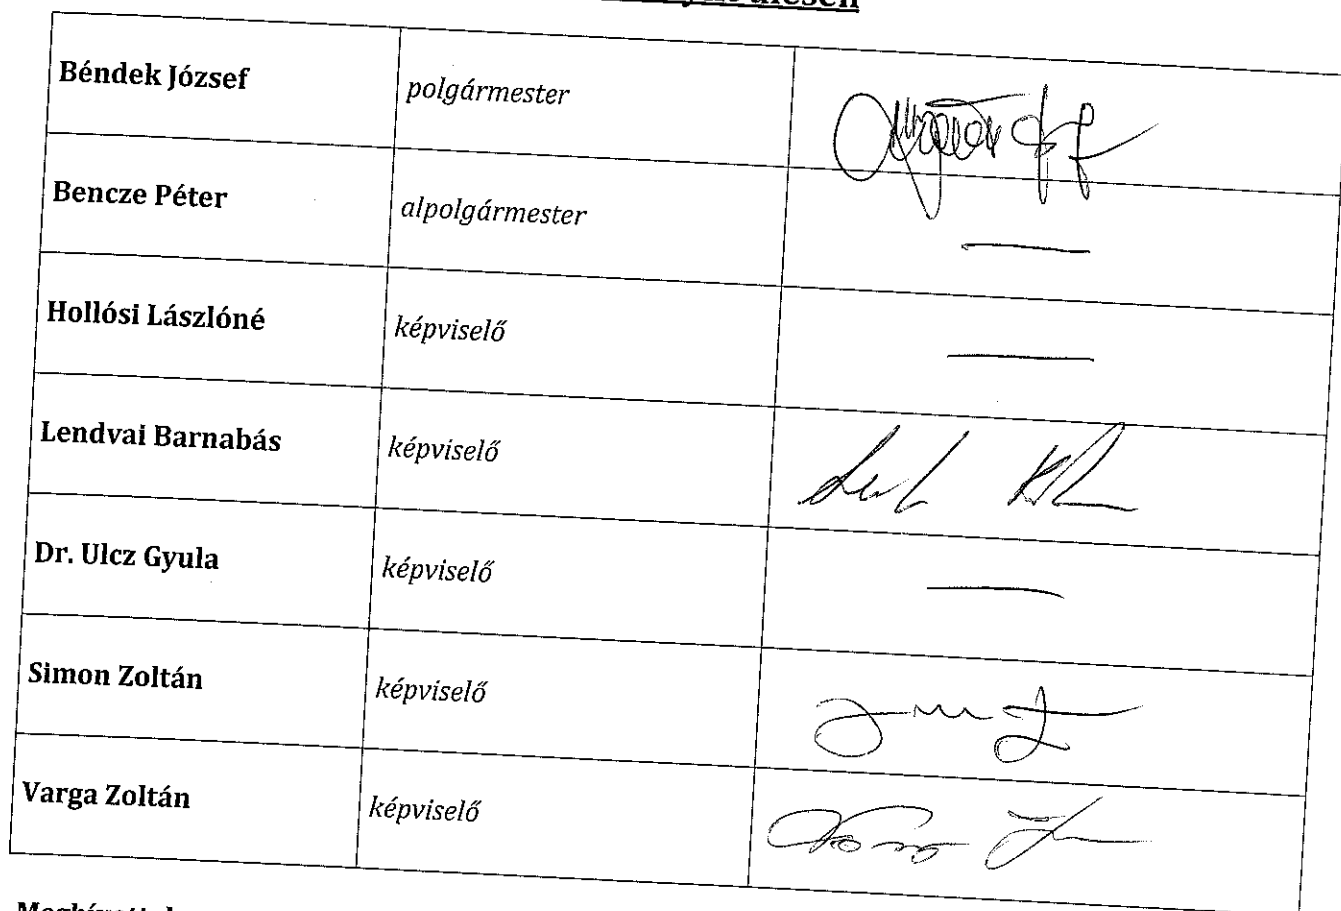 Béndek József polgármester
Bencze Péter alpolgármester
Hollósi Lászlóné képviselő
Lendvai Barnabás képviselő
Dr. Ulcz Gyula képviselő
Simon Zoltán képviselő
Varga Zoltán képviselő